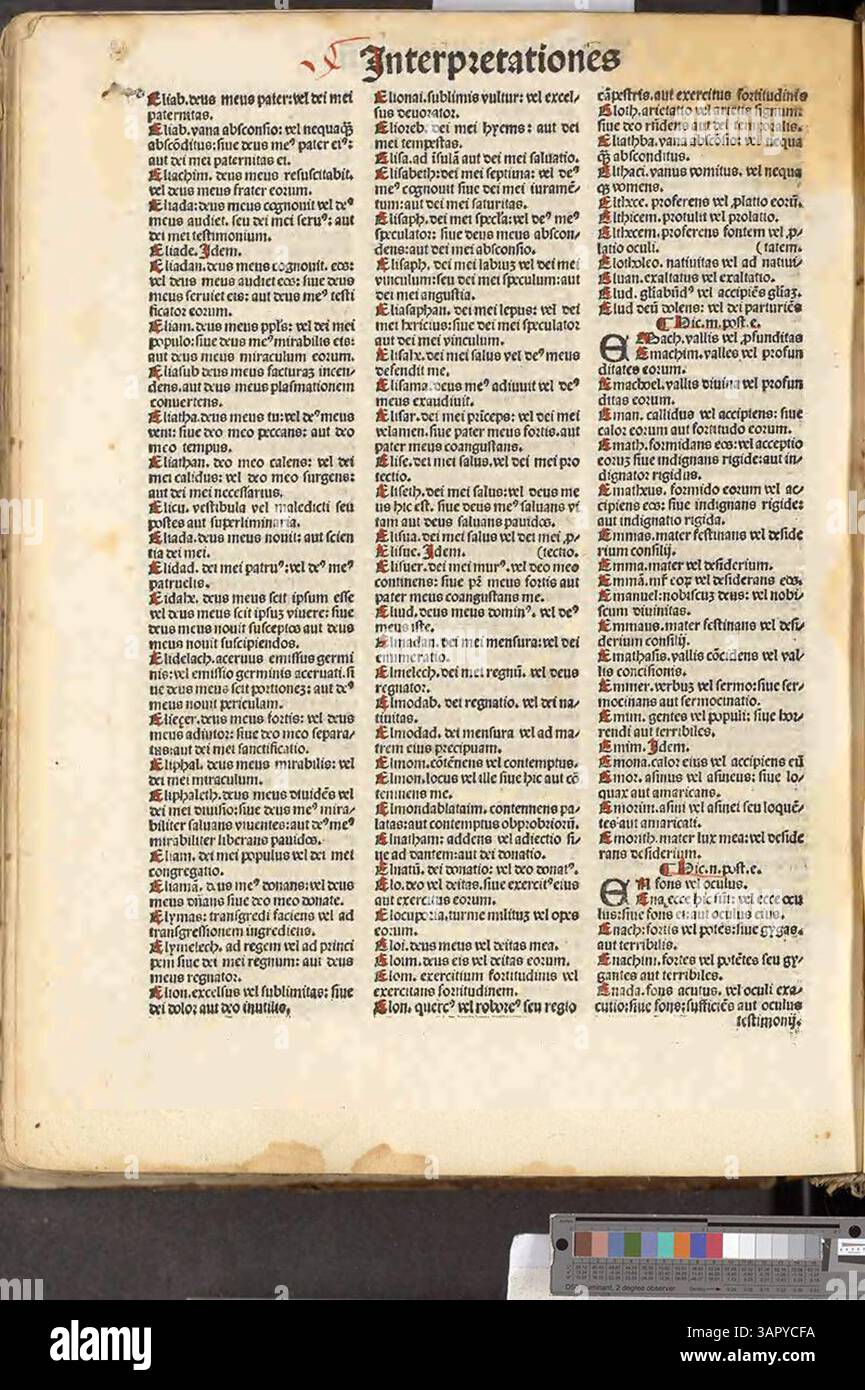 Interpretationes
Eliab. deus meus pater: vel dei mei
paternitas.
Eliab. vana absconsio: vel nequaqȝ
absconditus: siue deus meꝰ pater eiꝰ:
aut dei mei paternitas ei.
Eliachim. deus meus resuscitabit.
vel deus meus frater eorum.
Eliada: deus meus cognouit vel deꝰ
meus audiet. seu dei mei seruꝰ: aut
dei mei testimonium.
Eliade. Idem.
Eliadan. deus meus cognouit. eos:
vel deus meus audiet eos: siue deus
meus seruiet eis: aut deus meꝰ testi
ficator eorum.
Eliam. deus meus ppls: vel dei mei
populo: siue deus meꝰ mirabilis eis:
aut deus meus miraculum eorum.
Eliasub deus meus facturaȝ incen/
dens. aut deus meus plasmationem
conuertens.
Eliatha. deus meus tu: vel deꝰ meus
veni: siue deo meo peccans: aut deo
meo tempus.
Eliathan. deo meo calens: vel dei
mei calidus: vel deo meo surgens:
aut dei mei necessarius.
Elicu. vestibula vel maledicti seu
postes aut superliminaria.
Eliada. deus meus nouit: aut scien
tia dei mei.
Elidad. dei mei patruꝰ: vel deꝰ meꝰ
patruelis.
Eidalx. deus meus scit ipsum esse
vel deus meus scit ipsuȝ viuere: siue
deus meus nouit susceptos aut deus
meus nouit suscipiendos.
Elidelach. aceruus emissus germi
nis: vel emissio germinis aceruati. si
ue deus meus scit portioneȝ: aut deꝰ
meus nouit periculam.
Eliecer. deus meus fortis: vel deus
meus adiutor: siue deo meo separa/
tus: aut dei mei sanctificatio.
Eliphal. deus meus mirabilis: vel
dei mei miraculum.
Eliphaleth. deus meus diuidēs vel
dei mei diuisio: siue deus meꝰ mira/
biliter saluans viuentes: aut deꝰ meꝰ
mirabiliter liberans pauidos.
Eliam. dei mei populus vel dei mei
congregatio.
Eliamā. deus meꝰ donans: vel deus
meus dn̄ans siue deo meo donate.
Elymas: transgredi faciens vel ad
transgressionem ingrediens.
Elymelech. ad regem vel ad princi
pem siue dei mei regnum: aut deus
meus regnator.
Elion. excelsus vel sublimitas: siue
dei dolor aut deo inutilis.
Elionai. sublimis vultur: vel excel/
sus deuorator.
Elioreb. dei mei hyems: aut dei
mei tempestas.
Elisa. ad īsulā aut dei mei saluatio.
Elisabeth: dei mei septima: vel deꝰ
meꝰ cognouit siue dei mei iuramē/
tum: aut dei mei saturitas.
Elisaph. dei mei specla: vel deꝰ meꝰ
speculator: siue deus meus abscon/
dens: aut dei mei absconsio.
Elisaph. dei mei labiuȝ vel dei mei
vinculum: seu dei mei speculum: aut
dei mei angustia.
Eliasaphan. dei mei lepus: vel dei
mei hericius: siue dei mei speculator
aut dei mei vinculum.
Elisalx. dei mei salus vel deꝰ meus
defendit me.
Elisama. deus meꝰ adiuuit vel deꝰ
meus exaudiuit.
Elisar. dei mei prīceps: vel dei mei
velamen. siue pater meus fortis. aut
pater meus coangustans.
Elise. dei mei salus. vel dei mei pro
tectio.
Eliseth. dei mei salus: vel deus me
us hic est. siue deus meꝰ saluans vi
tam aut deus saluans pauidos.
Elisua. dei mei salus vel dei mei ,p/
Elisue. Idem. (tectio.
Elisuer. dei mei murꝰ. vel deo meo
continens: siue pr̄ meus fortis aut
pater meus coangustans me.
Eliud. deus meus dominꝰ. vel deꝰ
meus iste.
Elmadan. dei mei mensura: vel dei
enumeratio.
Elmelech. dei mei regnū. vel deus
regnator.
Elmodab. dei regnatio. vel dei na/
tiuitas.
Elmodad. dei mensura vel ad ma/
trem eius precipuam.
Elmom. cōtēnens vel contemptus.
Elmon. locus vel ille siue hic aut cō
temnens me.
Elmondablataim. contemnens pa/
latas: aut contemptus obprobriorū.
Elnatham: addens vel adiectio si/
ue ad dantem: aut dei donatio.
Elnatū. dei donatio: vel deo donatꝰ.
Elo. deo vel deitas. siue exercitꝰ eius
aut exercitus eorum.
Elocuporia. turme milituȝ vel opes
eorum.
Eloi. deus meus vel deitas mea.
Eloim. deus eis vel deitas eorum.
Elom. exercitium fortitudinis vel
exercitans fortitudinem.
Elon. quercꝰ vel roboreꝰ seu regio
cāpestris. aut exercitus fortitudinis
Eloth. arietatio vel arietis signum:
siue deo rn̄dens aut dei temporalis.
Eliathba. vana abscōsio: vel nequa
qȝ absconditus.
Elthaci. vanus vomitus. vel nequa
qȝ vomens.
Elthxce. proferens vel ,platio eorū.
Elthicem. protulit vel prolatio.
Elthxcem. proferens fontem vel ,p/
latio oculi. (tatem.
Elotholeo. natiuitas vel ad natiui/
Eluan. exaltatus vel exaltatio.
Elud. gl̄iabūdꝰ vel accipiēs gl̄iaȝ.
Elud deū dolens: vel dei parturiēs
¶Hic. m. post. e.
EMach. vallis vel ,pfunditas
Emachim. valles vel profun
ditates eorum.
Emachoel. vallis diuina vel profun
ditas eorum.
Eman. callidus vel accipiens: siue
calor eorum aut fortitudo eorum.
Emath. formidans eos: vel acceptio
eoruȝ siue indignans rigide: aut in/
dignator rigidus.
Ematheus. formido eorum vel ac/
cipiens eos: siue indignans rigide:
aut indignatio rigida.
Emmas. mater festinans vel deside
rium consilij.
Emma. mater vel desiderium.
Emmā. mr̄ eoȝ vel desiderans eos.
Emanuel: nobiscuȝ deus: vel nobi/
scum diuinitas.
Emmaus. mater festinans vel desi/
derium consilij.
Emathasis. vallis cōcidens vel val/
lis concisionis.
Emmer. verbuȝ vel sermo: siue ser/
mocinans aut sermocinatio.
Emim. gentes vel populi: siue hor/
rendi aut terribiles.
Emim. Idem.
Emona. calor eius vel accipiens eū
Emor. asinus vel asineus: siue lo/
quax aut amaricans.
Emorim. asini vel asinei seu loquē/
tes aut amaricati.
Emorith. mater lux mea: vel deside
rans desiderium.
¶Hic. n. post. e.
EN fons vel oculus.
Ena. ecce hic sūt: vel ecce ocu
lus: siue fons ei: aut oculus eius.
Enach: fortis vel potēs: siue gygas.
aut terribilis.
Enachim. fortes vel potētes seu gy/
gantes aut terribiles.
Enada. fons acutus. vel oculi exa/
cutio: siue fons: sufficiēs aut oculus
testimonij.
alamy
Image ID: 3APYCFA
www.alamy.com